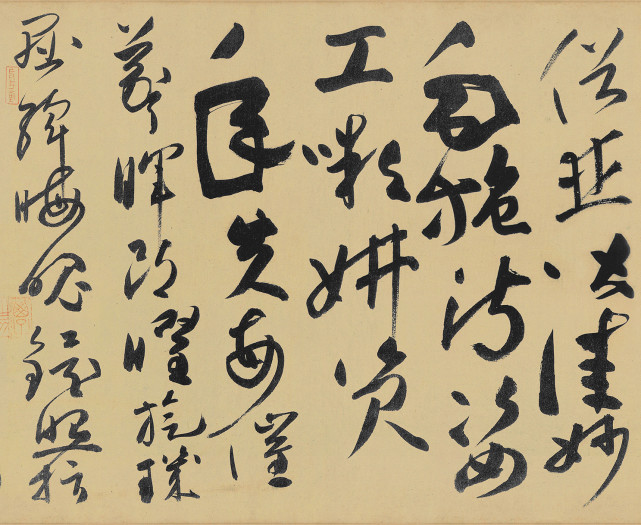 俗並皆佳妙
毛施淑姿
工嚬妍笑
年矢每催
羲暉朗曜旋璣
懸斡晦魄環照指